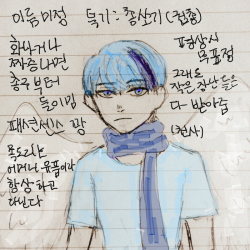 이름미정
특기 : 활쏘기 (컴형)
화나거나
짜증나면
총구 부터
들이밈
패션센스 꽝
목도리는
어머니 유품이라
항상 하고
다닌다
평상시
무표정
그래도
작은 장난들은
다 받아줌
(천사)